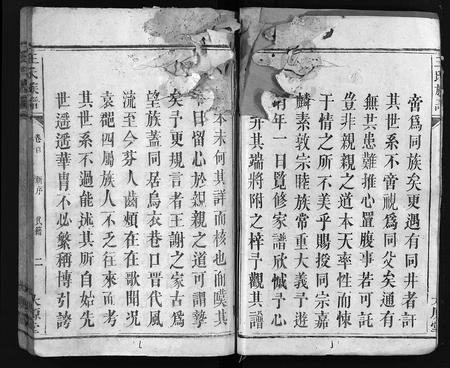 啻爲同族矣更遇有同井者訐
其世系不啻視爲同父矣適有
無共患難推心置腹事若可託
豈非親親之道本天率性而悚
于情之所不美乎賜掞同宗嘉
麟素敦宗睦族常重大義予遊
年一日覽修家譜欣慽予心
其瑞將附之梓予觀其譜
本末何其詳而核也而嘆其
日留心於親親之道可謂摯
矣予更規言者王謝之家古爲
望族蓋同居烏衣巷口晉代風
流至今芬人齒頰在在歌聞况
袁邈四屬族人不乏往來而考
其世系不過能述其所自始先
世遥遥華胄不必繁稱博引誇
王氏族譜 卷首 新序 民籍 二 太原堂